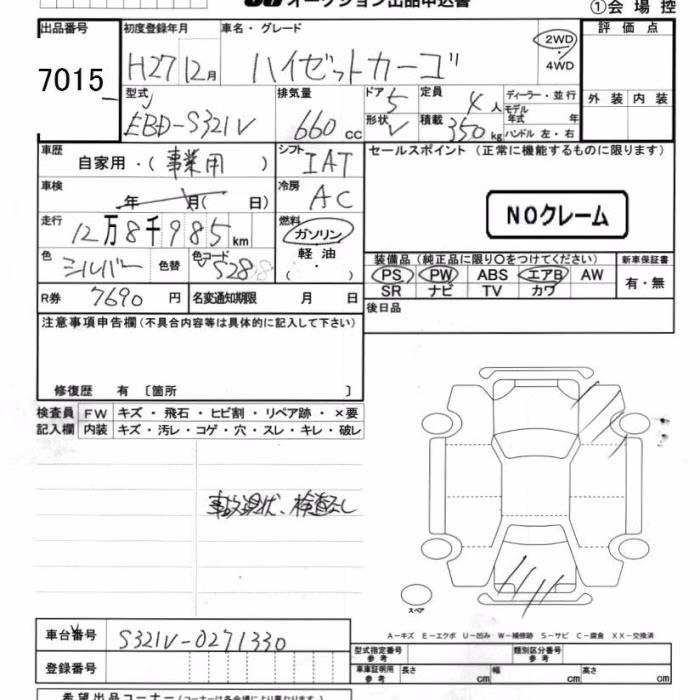 オークション出品申込書
①会場控
出品番号 初度登録年月 車名・グレード 評価点
7015 H27 12月 ハイゼットカーゴ 2WD・4WD
型式 排気量 ドア 定員 ディーラー・並行 外装 内装
EBD-S321V 660cc 5 4人 モデル年式 年
形状 V 積載 350kg ハンドル 左・右
車歴 自家用・(事業用) シフト IAT セールスポイント(正常に機能するものに限ります)
車検 年 月( 日) 冷房 AC NOクレーム
走行 12万8千985km 燃料 ガソリン・軽油・( )
色 シルバー 色替 色コード S28 装備品(純正品に限り○をつけてください) 新車保証書
PS PW ABS エアB AW 有・無
SR ナビ TV カワ
R券 7690円 名変通知期限 月 日 後日品
注意事項申告欄(不具合内容等は具体的に記入して下さい)
修復歴 有 〔箇所 〕
検査員 FW キズ・飛石・ヒビ割・リペア跡・×要
記入欄 内装 キズ・汚レ・コゲ・穴・スレ・キレ・破レ
事故現状、検査なし
スペア
A-キズ E-エクボ U-凹み W-補修跡 S-サビ C-腐食 XX-交換済
車台番号 S321V-0271330 型式指定番号 参考 類別区分番号 参考
登録番号 車庫証明用 参考 長さ cm 幅 cm 高さ cm
希望出品コーナー(コーナーは各会場により異なります)